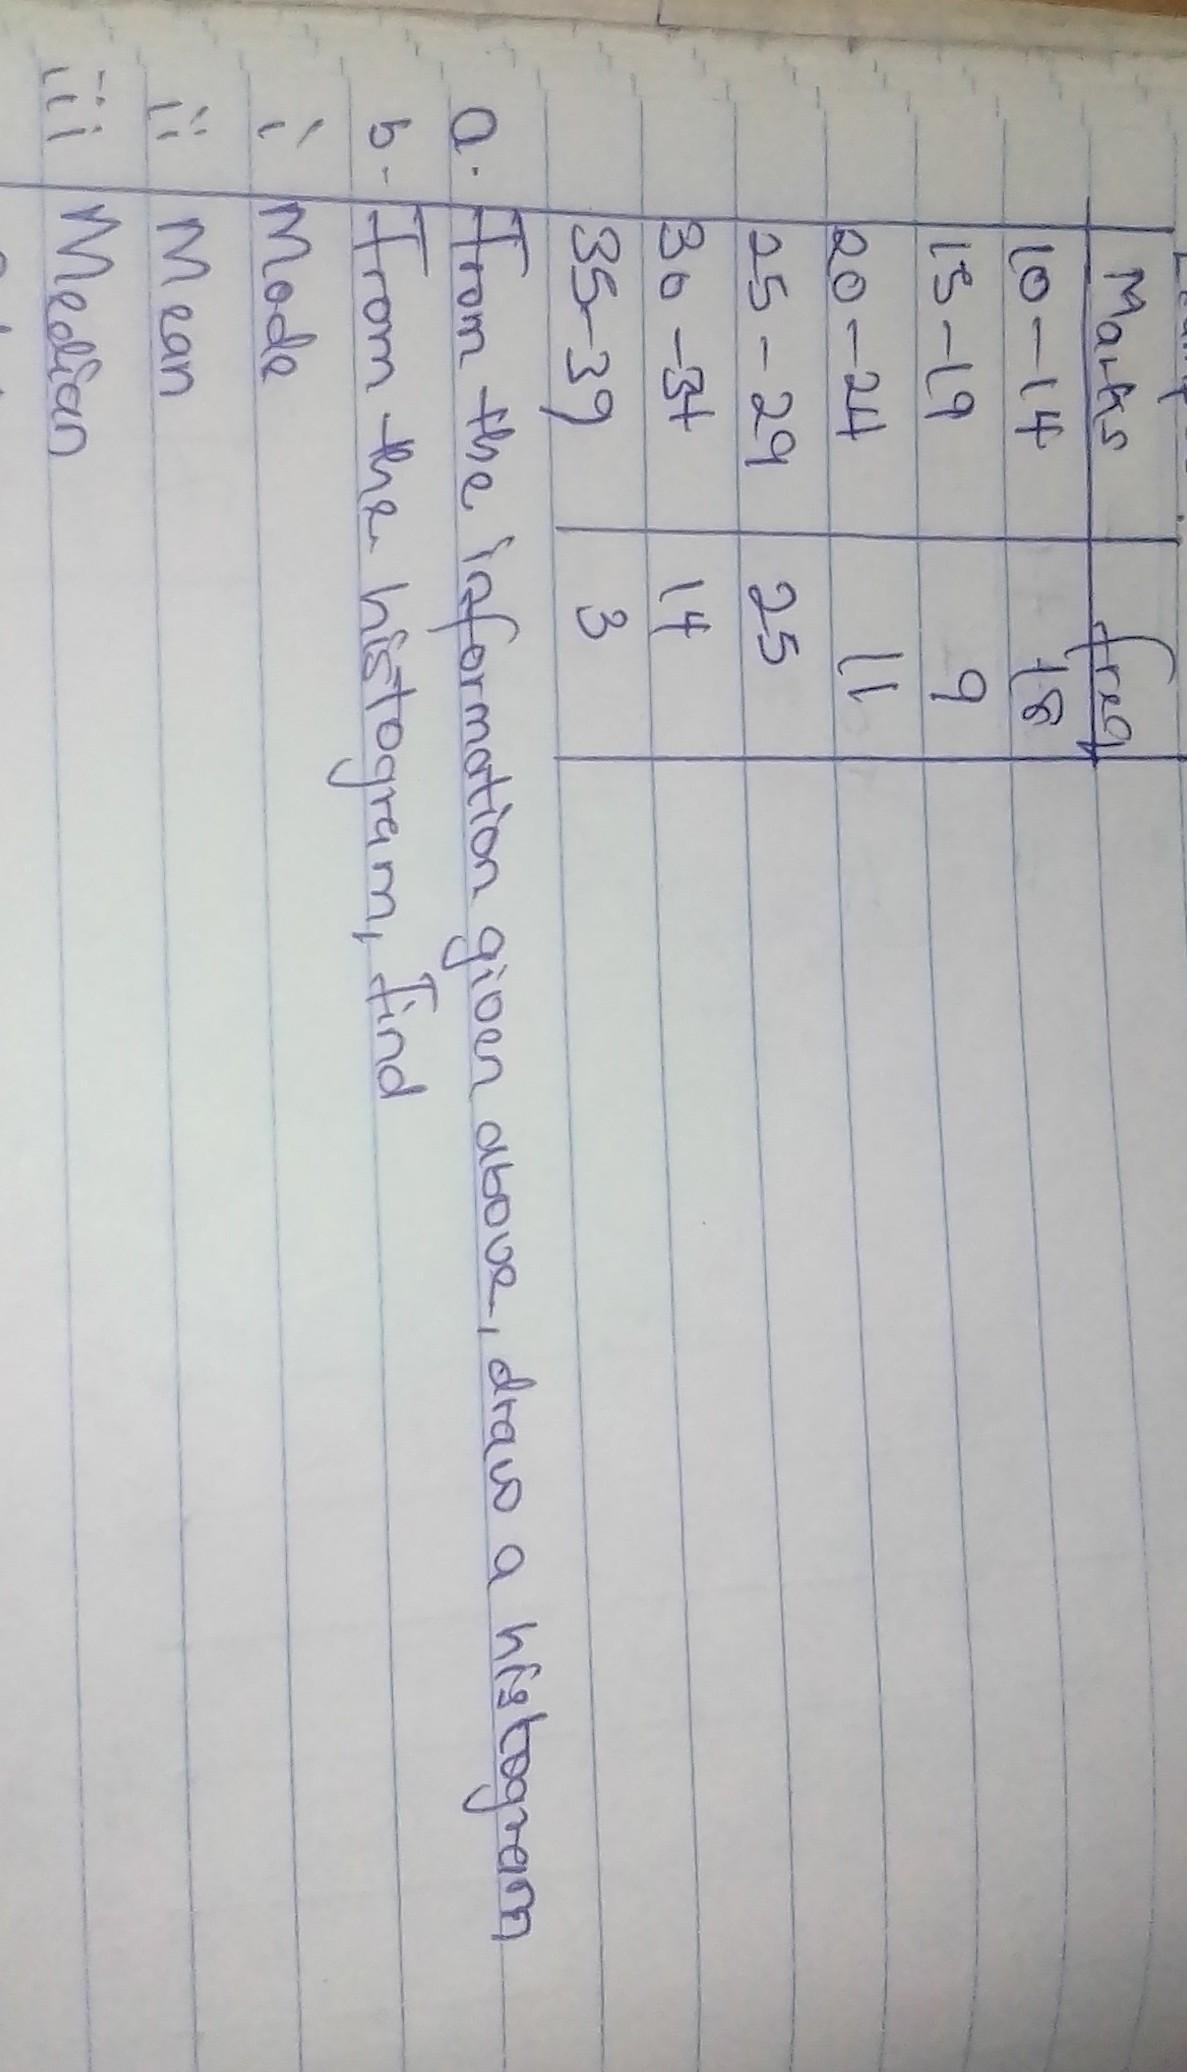 Marks freq
10-14 18
15-19 9
20-24 11
25-29 25
30-34 14
35-39 3
a. From the information given above, draw a histogram
b- From the histogram, find
i Mode
ii Mean
iii Median